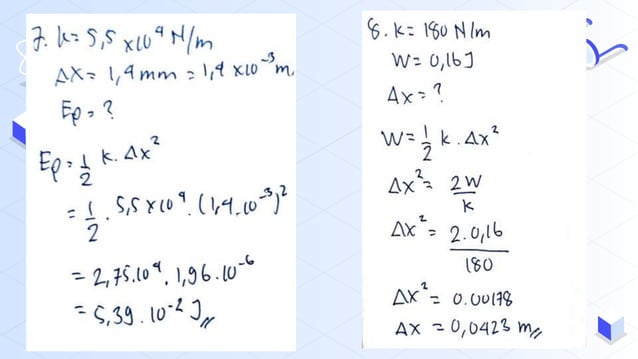 7. k = 5,5 × 10⁴ N/m
Δx = 1,4 mm = 1,4 × 10⁻³ m.
Ep = ?
Ep = 1/2 k. Δx²
= 1/2 . 5,5 × 10⁴. (1,4.10⁻³)²
= 2,75.10⁴ . 1,96.10⁻⁶
= 5,39 . 10⁻² J //
8. k = 180 N/m
W = 0,16 J
Δx = ?
W = 1/2 k . Δx²
Δx² = 2W/k
Δx² = 2.0,16/180
Δx² = 0.00178
Δx = 0,0423 m //